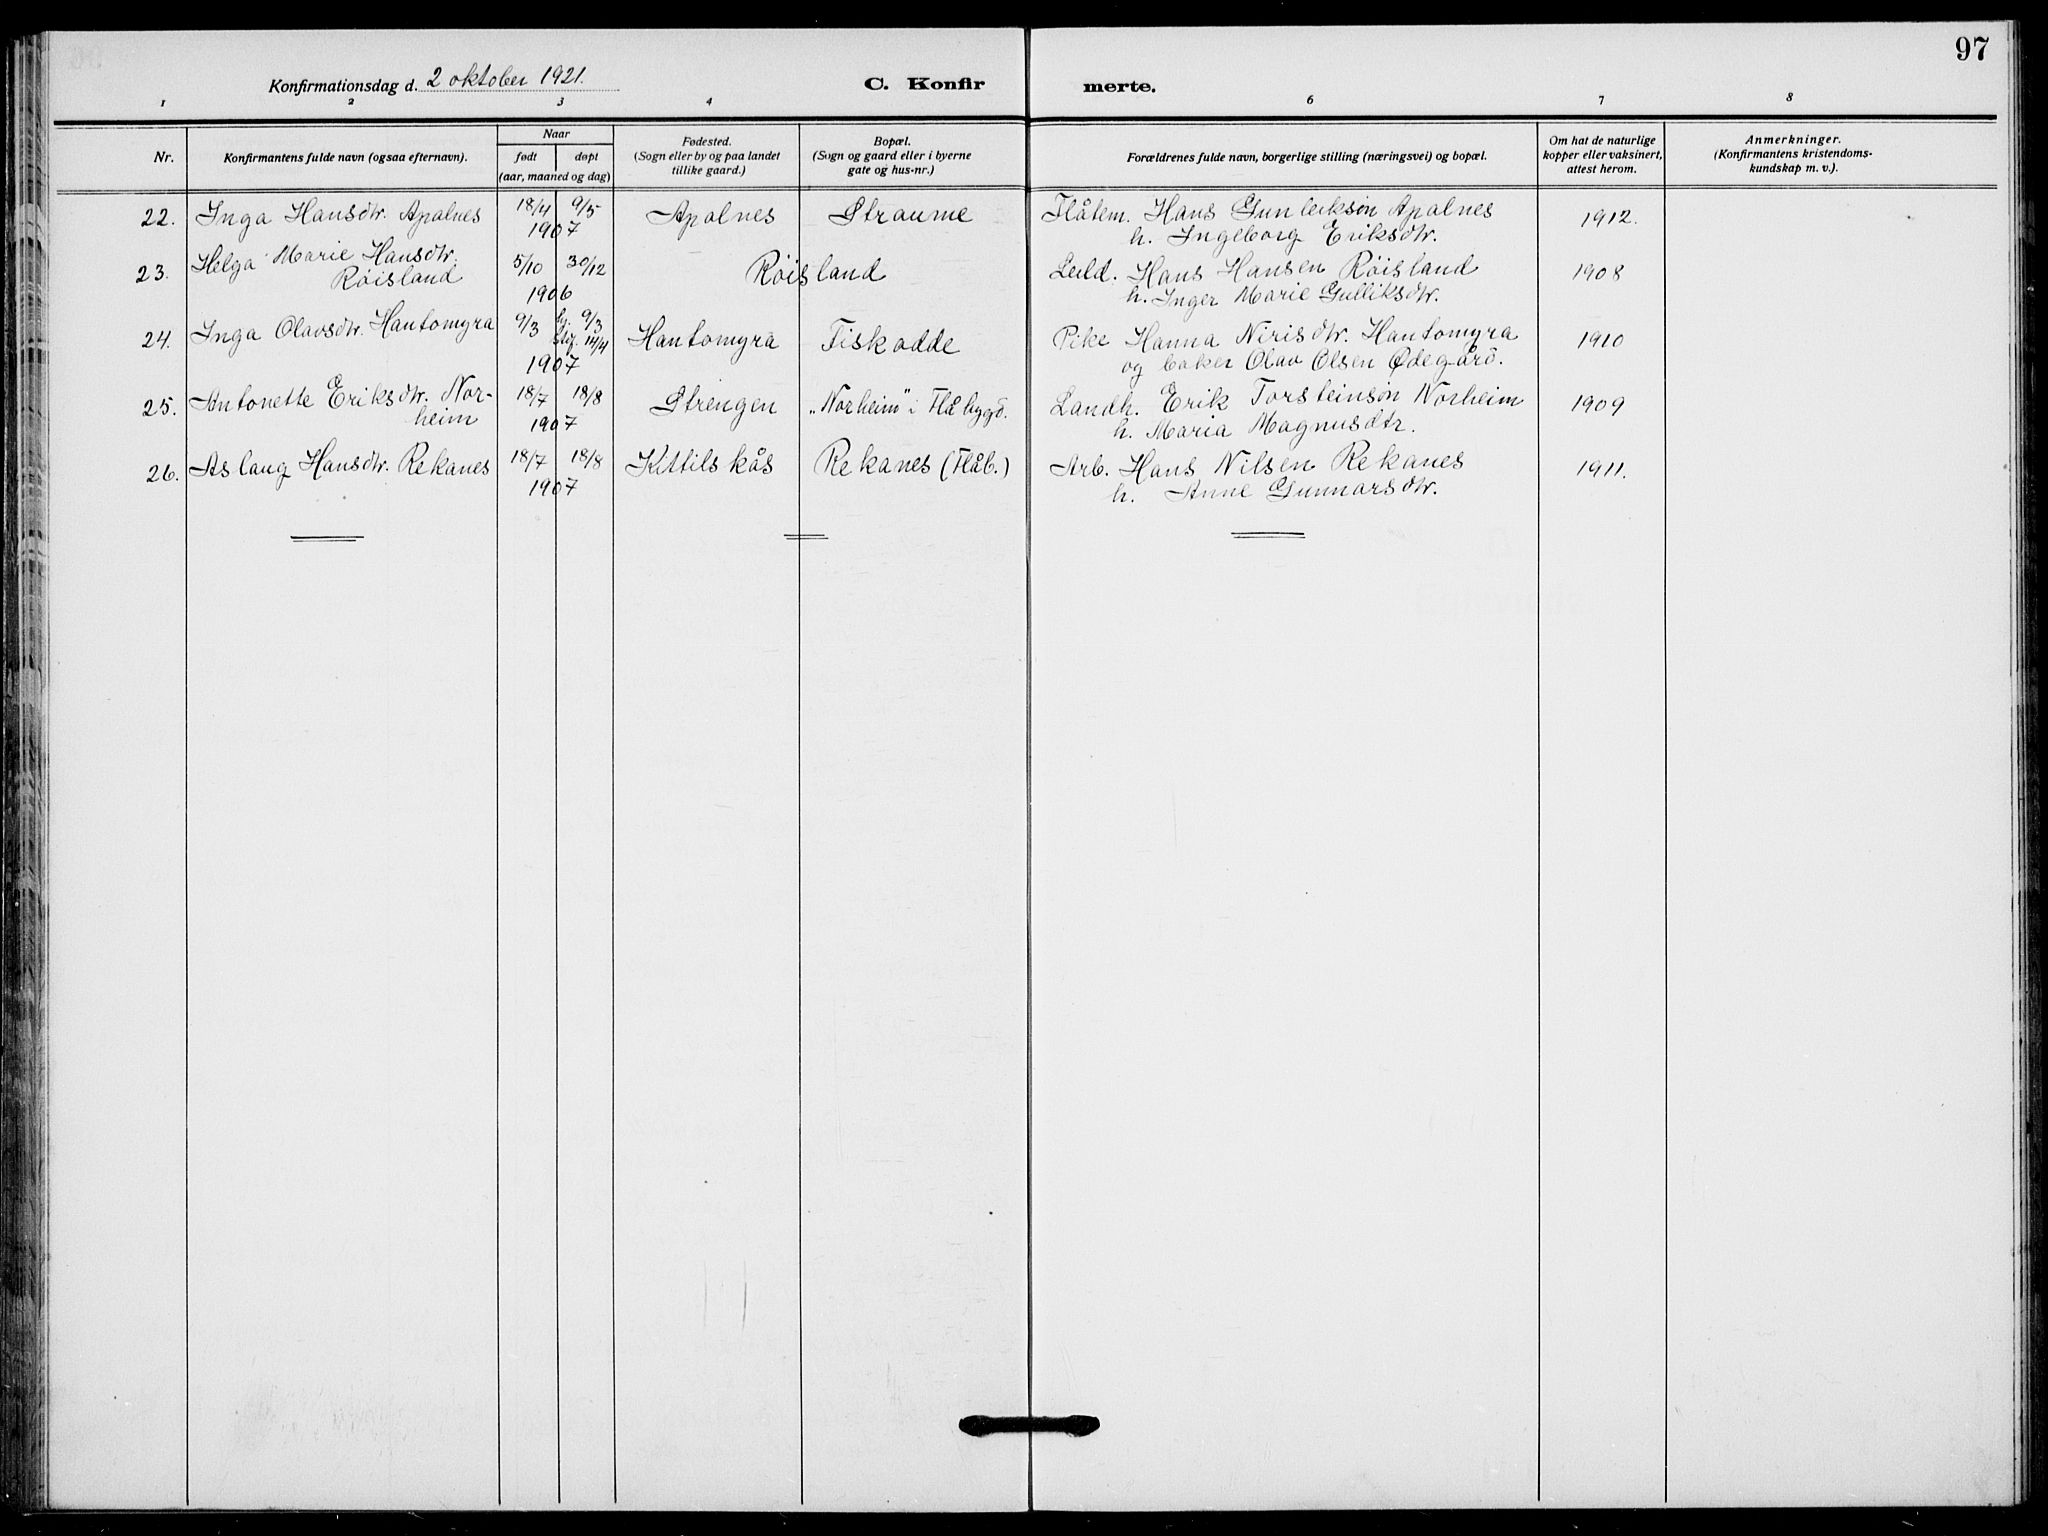 97
Konfirmationsdag d. 2 oktober 1921. C. Konfirmerte.
1 2 3 4 6 7 8
Nr. Konfirmantens fulde navn (ogsaa efternavn). Naar født døpt (aar, maaned og dag) Fødested. (Sogn eller by og paa landet tillike gaard.) Bopæl. (Sogn og gaard eller i byerne gate og hus-nr.) Forældrenes fulde navn, borgerlige stilling (næringsvei) og bopæl. Om hat de naturlige kopper eller vaksinert, attest herom. Anmerkninger. (Konfirmantens kristendoms-kundskap m. v.).
22. Inga Hansdtr. Apalnes 18/4 9/5 Apalnes Straume Flåtem. Hans Gunleiksøn Apalnes 1912.
1907 h. Ingeborg Eriksdtr.
23. Helga Marie Hansdtr. 5/10 30/12 Røisland Leild. Hans Hansen Røisland 1908
Røisland 1906 h. Inger Marie Gulliksdtr.
24. Inga Olavsdtr. Hantomyra 9/3 hj. 9/3 Hantomyra Fiskodde Pike Hanna Nirisdtr. Hantomyra 1910
stf. 14/4
1907 og baker Olav Olsen Ødegård.
25. Antonette Eriksdtr. Nor- 18/7 18/8 Strengen „Norheim" i Flåbygd. Landh. Erik Torsteinsøn Norheim 1909
heim 1907 h. Maria Magnusdtr.
26. Aslaug Hansdtr. Rekanes 18/7 18/8 Kittilskås Rekanes (Flåb.) Arb. Hans Nilsen Rekanes 1911.
1907 h. Anne Gunnarsdtr.